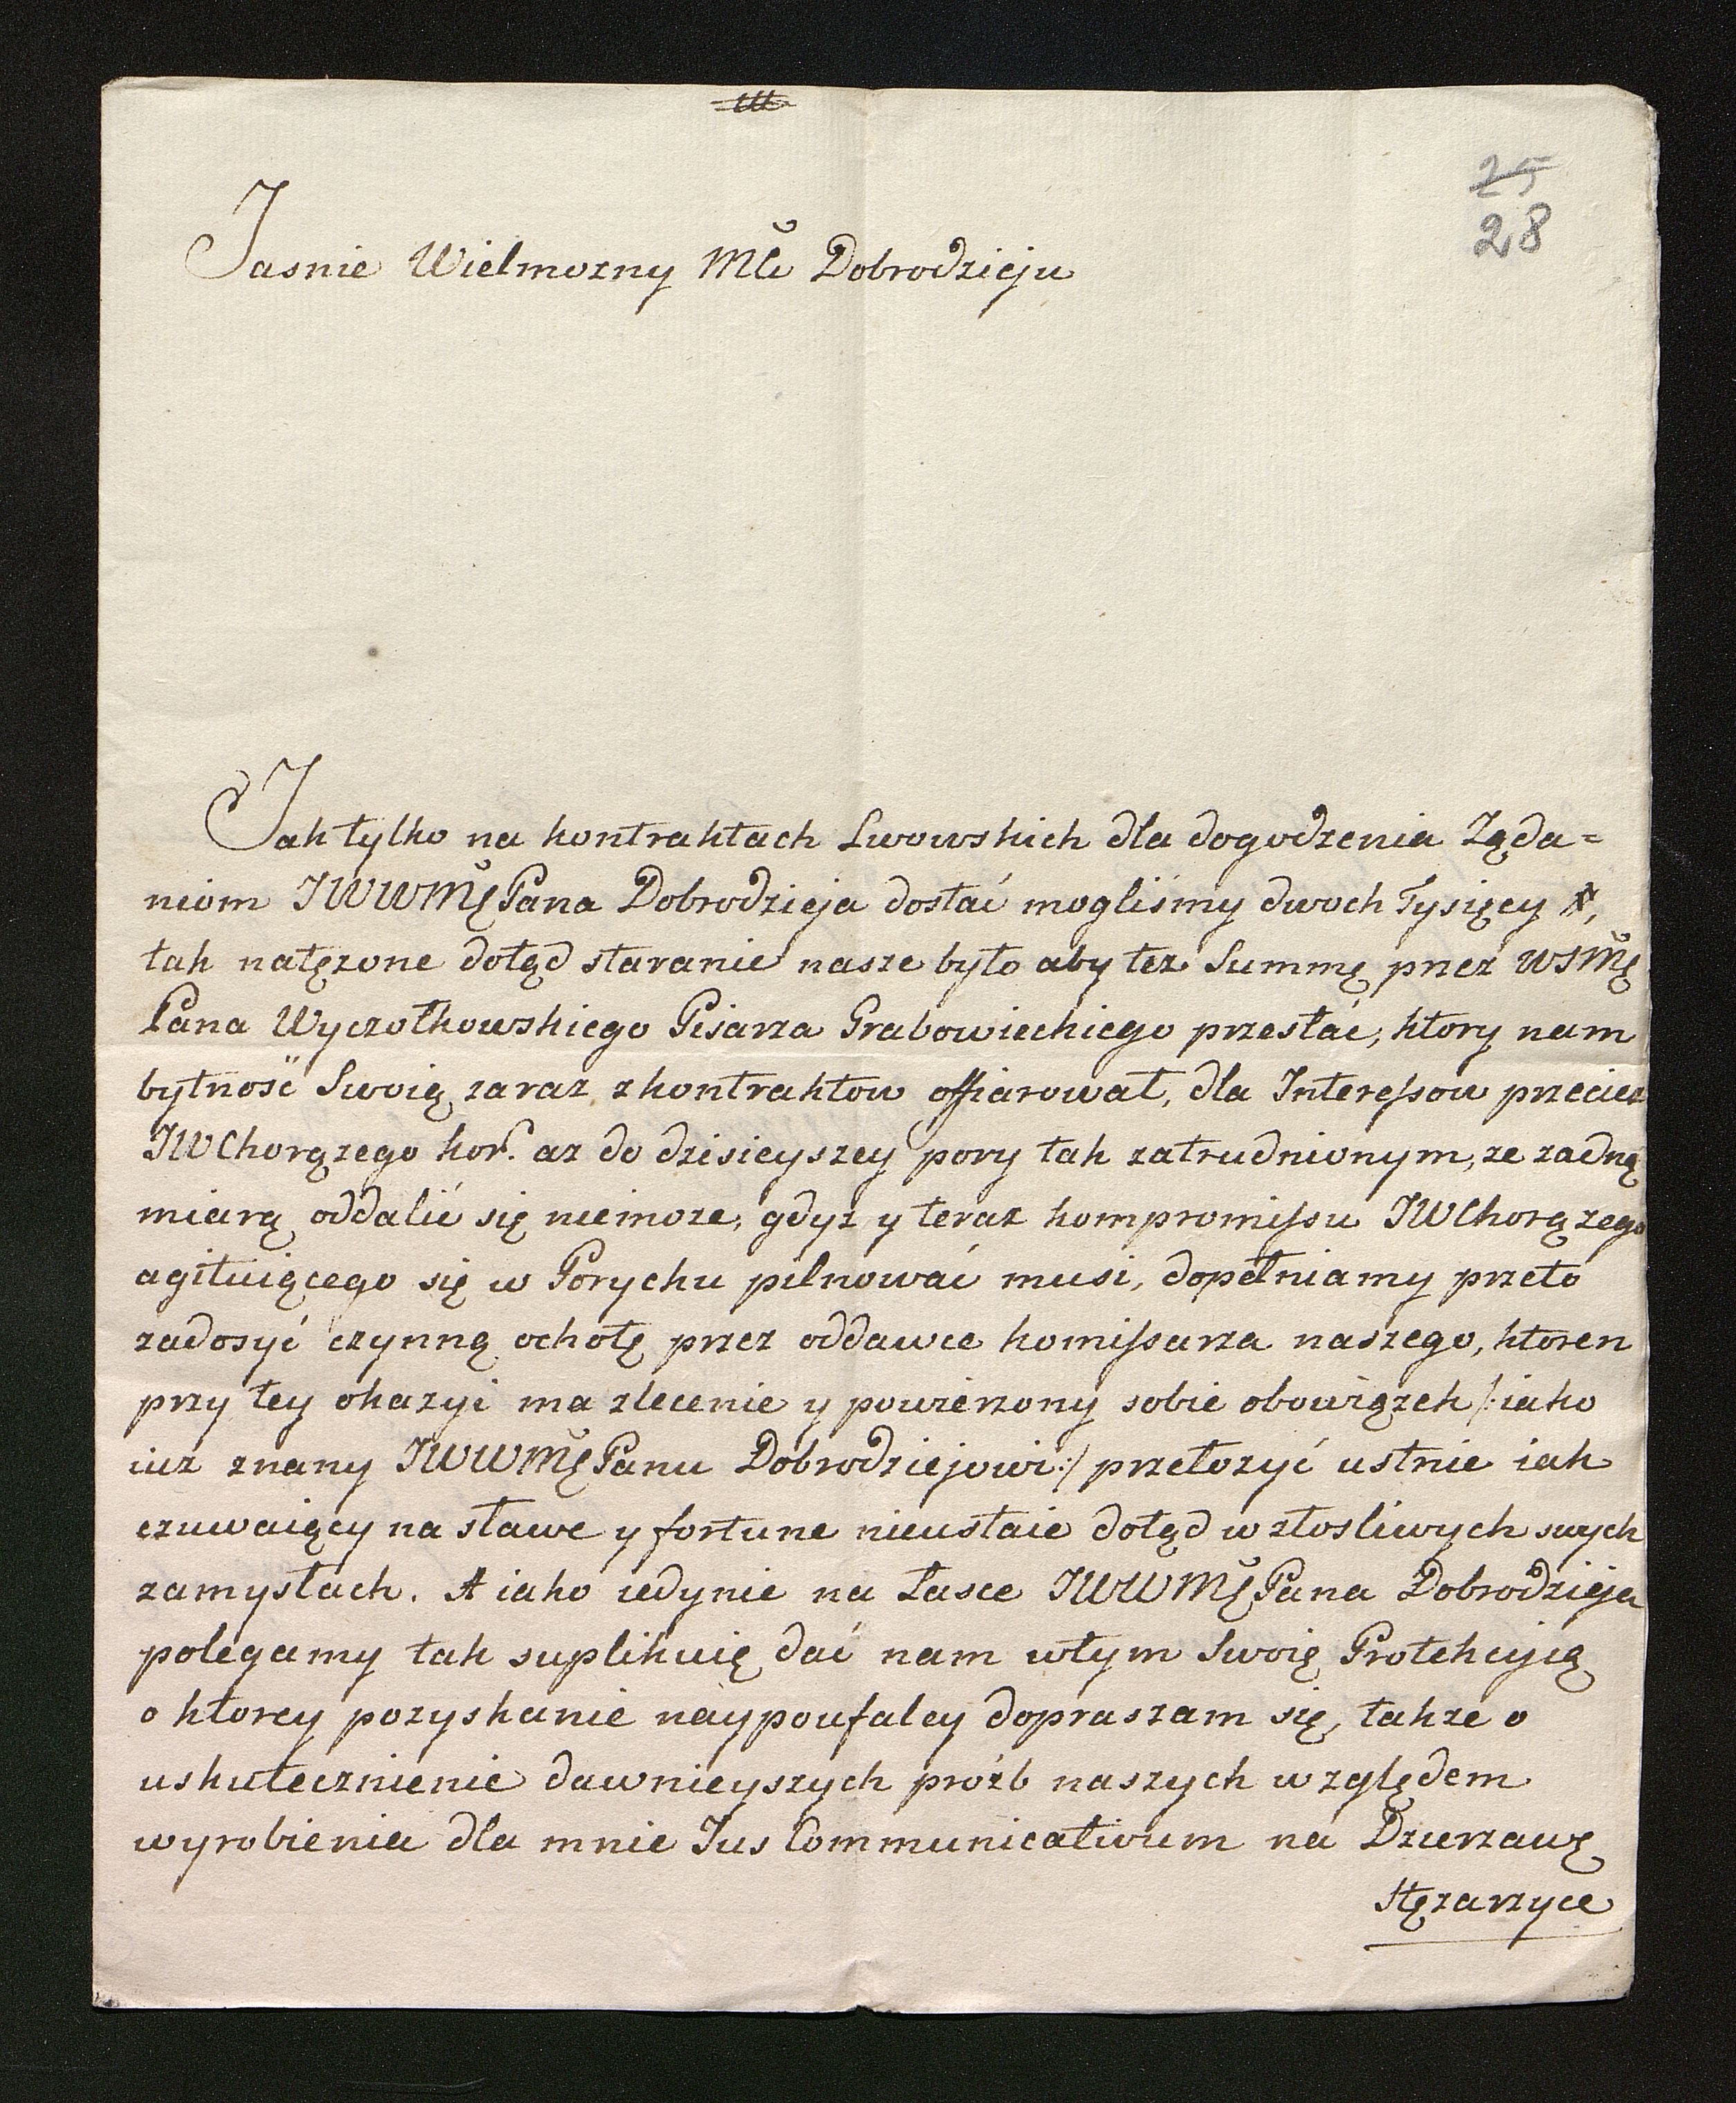 25
28
Jasnie Wielmozny Mć Dobrodzieju
Jak tylko na kontraktach Lwowskich dla dogodzenia Ząda=
niom JWWMę Pana Dobrodzieja dostać mogliśmy dwoch Tysięcy
tak natęzone dotąd staranie nasze było aby tez Summę przez WJMę
Pana Wyczołkowskiego Pisarza Grabowieckiego przesłać, ktory nam
bytność Swoią zaraz zkontraktow offiarował, dla Interessow przeciez
JWChorązego kor. az do dzisieyszey pory tak zatrudnionym, ze zadną
miarą oddalić się niemoze, gdyz y teraz kompromissu JWChorązego
agituiącego się w Porycku pilnować musi, dopełniamy przeto
zadosyć czynną ochotę przez oddawce kommissarza naszego, ktoren
przy tey okazyi ma zlecenie y powierzony sobie obowiązek /: iako
iuz znany JWWMę Panu Dobrodziejowi :/ przełozyć ustnie iak
czuwaiący na sławe y fortune nieustaie dotąd w złosliwych swych
zamysłach. A iako iedynie na Łasce JWWMę Pana Dobrodzieja
polegamy tak suplikuię dać nam wtym Swoię Protekcyią
o ktorey pozyskanie naypoufaley dopraszam się, takze o
uskutecznienie dawnieyszych proźb naszych względem
wyrobienia dla mnie Jus Communicativum na Dzierzawę
Stęzarzyce